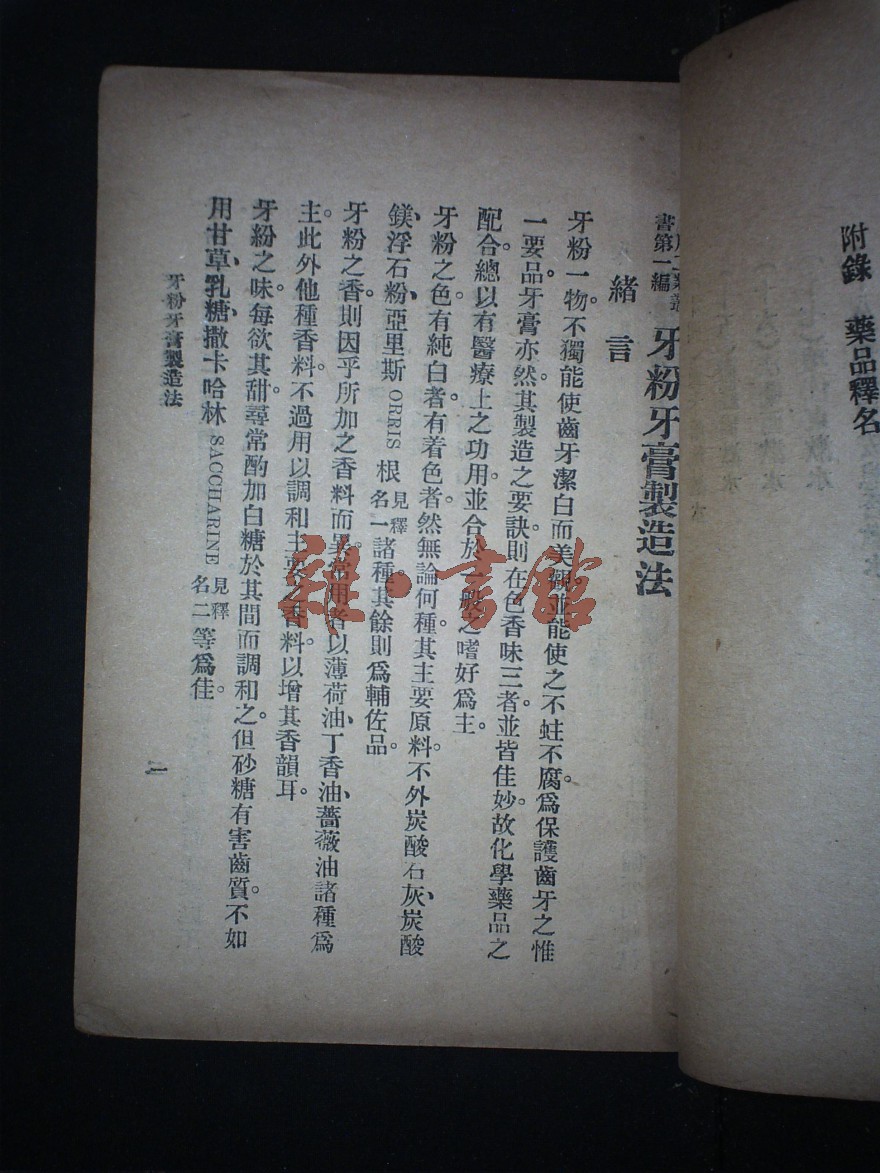 附錄　藥品釋名
書第一編
牙粉牙膏製造法
緒言
牙粉一物。不獨能使齒牙潔白而美觀。並能使之不蛀不腐。爲保護齒牙之惟
一要品。牙膏亦然。其製造之要訣。則在色香味三者。並皆佳妙。故化學藥品之
配合。總以有醫療上之功用。並合於一般之嗜好爲主。
牙粉之色。有純白者。有着色者。然無論何種。其主要原料。不外炭酸石灰、炭酸
鎂、浮石粉、亞里斯 ORRIS 根見釋名一諸種。其餘則爲輔佐品。
牙粉之香。則因乎所加之香料而異。常用者以薄荷油、丁香油、薔薇油諸種爲
主。此外他種香料。不過用以調和主要之香料。以增其香韻耳。
牙紛之味。每欲其甜。尋常酌加白糖於其間而調和之。但砂糖有害齒質。不如
用甘草、乳糖、撒卡哈林 SACCHARINE 見釋名二等爲佳。
牙粉牙膏製造法
一
雜·書館